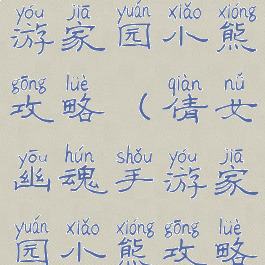 yóu jiā yuán xiǎo xióng
游家园小熊
gōng lüè qiàn nǚ
攻略（倩女
yōu hún shǒu yóu jiā
幽魂手游家
yuán xiǎo xióng gōng lüè
园小熊攻略